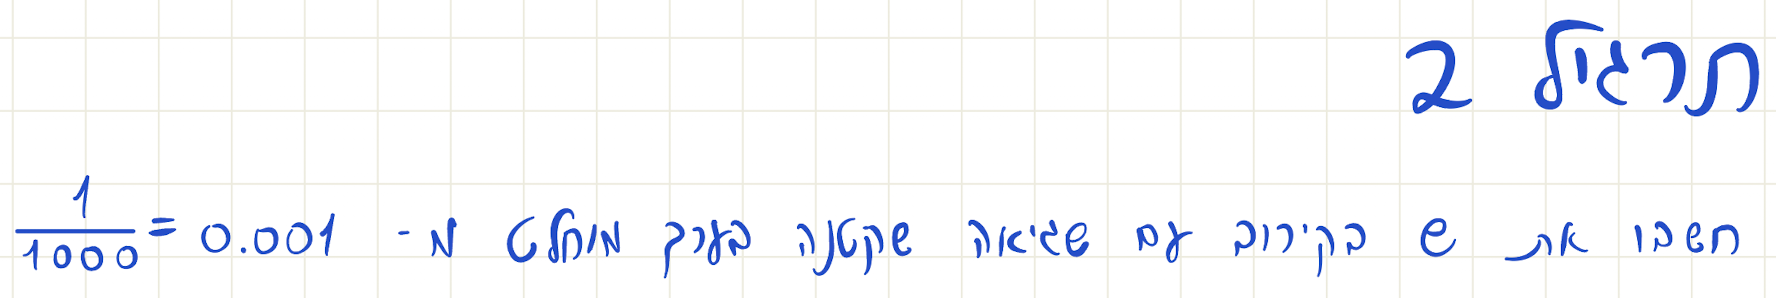 תרגיל 2
חשבו את e בקירוב עם שגיאה שקטנה בערך מוחלט מ- 0.001 = 1/1000